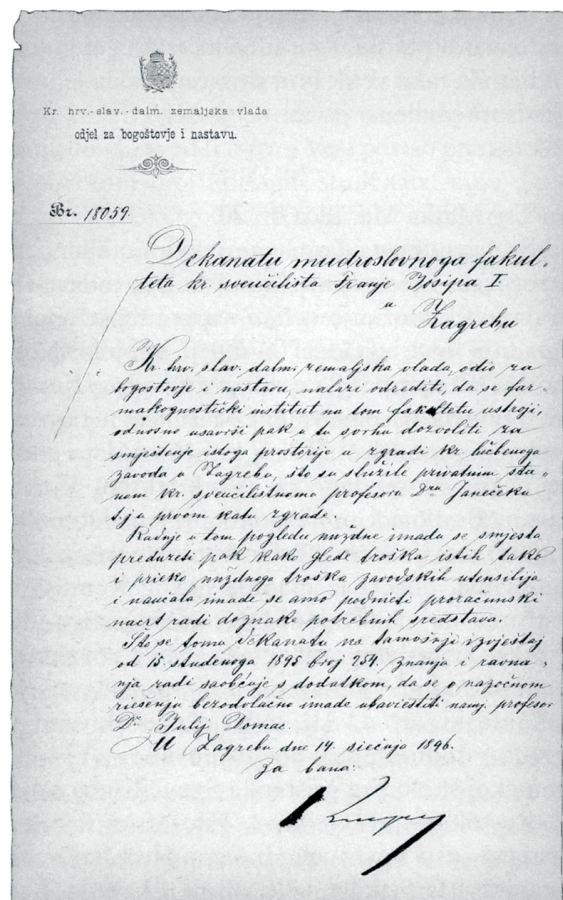 Kr. hrv.-slav.-dalm. zemaljska vlada
odjel za bogoštovje i nastavu.
Br. 18059
Dekanatu mudroslovnoga fakul-
teta kr. sveučilišta Franje Josipa I
u
Zagrebu
Kr. hrv. slav. dalm. zemaljska vlada, odio za
bogoštovje i nastavu, nalazi odrediti, da se far-
makognostički institut na tom fakultetu ustroji,
odnosno usavrši pak u tu svrhu dozvoliti za
smještenje istoga prostorije u zgradi kr. lučbenoga
zavoda u Zagrebu, što su služile privatnim sta-
nom kr. sveučilištnomu profesoru Dru Janečeku
t.j. u prvom katu zgrade.
Radnje u tom pogledu nuždne imadu se smjesta
preduzeti pak kako glede troška istih tako
i prieko nuždnoga troška zavodskih utensilija
i naučala imade se amo podnieti proračunski
nacrt radi doznake potrebnih sredstava.
Što se tomu dekanatu na tamošnji izvještaj
od 15. studenoga 1895 broj 254. znanja i ravna-
nja radi saobćuje s dodatkom, da se o nazočnom
riešenju bezodvlačno imade obaviestiti namj. profesor
Dr. Julij Domac.
U Zagrebu dne 14. siečnja 1896.
Za bana: